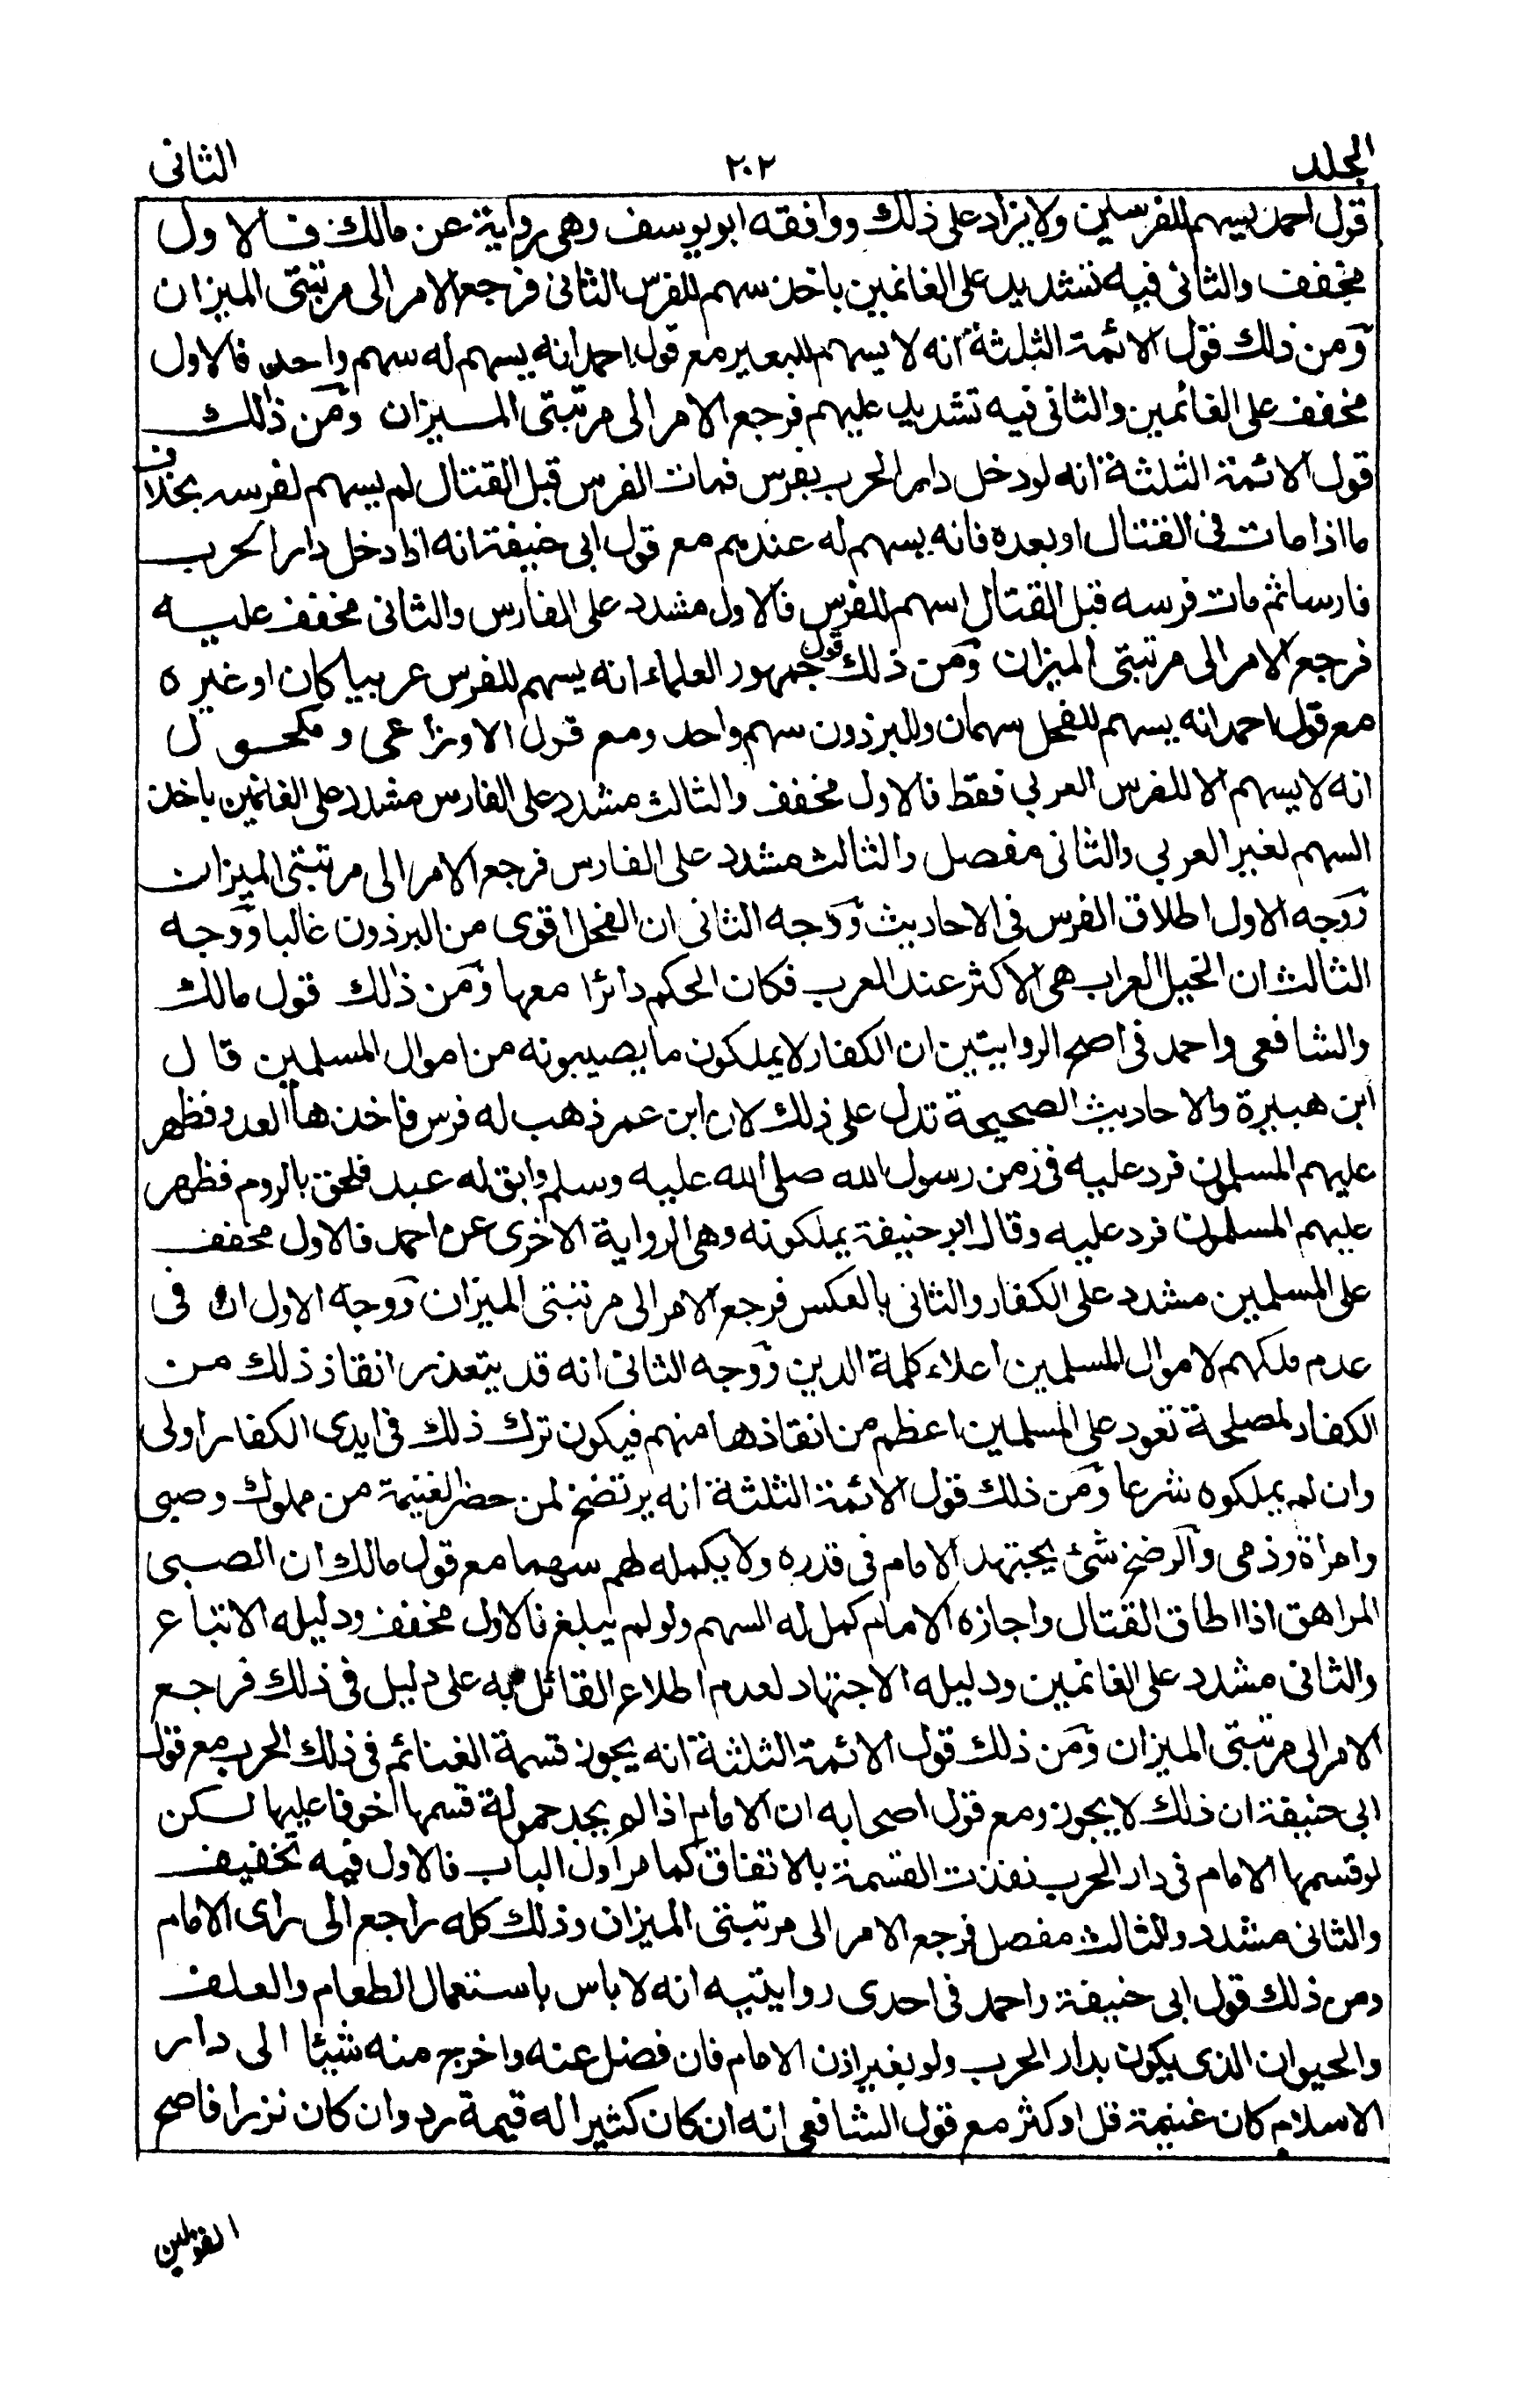 الجلد ٢٠٢ الثانى
قول احمد يسهم للفرسين ولا يزاد على ذلك ووافقه ابويوسف وهى رواية عن مالك فالاول
مخفف والثانى فيه تشديد على الغانمين باخذ سهم للفرس الثانى فرجع الامر الى مرتبتى الميزان
ومن ذلك قول الائمة الثلثة انه لا يسهم للبعير مع قول احمد انه يسهم له سهم واحد فالاول
مخفف على الغانمين والثانى فيه تشديد عليهم فرجع الامر الى مرتبتى الميزان ومن ذلك
قول الائمة الثلثة انه لو دخل دار الحرب بفرس فمات الفرس قبل القتال لم يسهم لفرسه بخلاف
ما اذا مات فى القتال او بعده فانه يسهم له عندهم مع قول ابى حنيفة انه اذا دخل دار الحرب
فارسا ثم مات فرسه قبل القتال اسهم للفرس فالاول مشدد على الفارس والثانى مخفف عليه
فرجع الامر الى مرتبتى الميزان ومن ذلك قول جمهور العلماء انه يسهم للفرس عربيا كان او غيره
مع قول احمد انه يسهم للفحل سهمان وللبرذون سهم واحد ومع قول الاوزاعى ومكحول
انه لا يسهم الا للفرس العربي فقط فالاول مخفف والثالث مشدد على الفارس مشدد على الغانمين باخذ
السهم لغير العربي والثانى مفصل والثالث مشدد على الفارس فرجع الامر الى مرتبتى الميزان
ووجه الاول اطلاق الفرس فى الاحاديث ووجه الثانى ان الفحل اقوى من البرذون غالبا ووجه
الثالث ان الخيل العراب هى الاكثر عند العرب فكان الحكم دائرا معها ومن ذلك قول مالك
والشافعى واحمد فى اصح الروايتين ان الكفار لا يملكون ما يصيبونه من اموال المسلمين قال
ابن هبيرة والاحاديث الصحيحة تدل على ذلك لان ابن عمر ذهب له فرس فاخذها العدو فظهر
عليهم المسلمون فرد عليه فى زمن رسول الله صلى الله عليه وسلم وابق له عبد فلحق بالروم فظهر
عليهم المسلمون فرد عليه وقال ابو حنيفة يملكونه وهى الرواية الاخرى عن احمد فالاول مخفف
على المسلمين مشدد على الكفار والثانى بالعكس فرجع الامر الى مرتبتى الميزان ووجه الاول ان فى
عدم ملكهم لاموال المسلمين اعلاء كلمة الدين ووجه الثانى انه قد يتعذر انقاذ ذلك من
الكفار لمصلحة تعود على المسلمين اعظم من انقاذها منهم فيكون ترك ذلك فى ايدى الكفار اولى
وان لم يملكوه شرعا ومن ذلك قول الائمة الثلثة انه يرتضخ لمن حضر الغنيمة من مملوك وصبى
وامراة وذمى والرضخ شئ يجتهد الامام فى قدره ولا يكمله لهم سهما مع قول مالك ان الصبى
المراهق اذا اطاق القتال واجازه الامام كمل له السهم ولو لم يبلغ فالاول مخفف ودليله الاتباع
والثانى مشدد على الغانمين ودليله الاجتهاد لعدم اطلاع القائل به على دليل فى ذلك فرجع
الامر الى مرتبتى الميزان ومن ذلك قول الائمة الثلثة انه يجوز قسمة الغنائم فى ذلك الحرب مع قول
ابى حنيفة ان ذلك لا يجوز ومع قول اصحابه ان الامام اذا لم يجد حمولة قسمها خوفا عليها لكن
لو قسمها الامام فى دار الحرب نفذت القسمة بالاتفاق كما مر اول الباب فالاول فيه تخفيف
والثانى مشدد والثالث مفصل فرجع الامر الى مرتبتى الميزان وذلك كله راجع الى راى الامام
ومن ذلك قول ابى حنيفة واحمد فى احدى روايتيه انه لا باس باستعمال الطعام والعلف
والحيوان الذى يكون بدار الحرب ولو بغير اذن الامام فان فضل عنه واخرج منه شيئا الى دار
الاسلام كان غنيمة قل او كثر مع قول الشافعى انه ان كان كثيرا له قيمة رد وان كان نزرا فاصح
القولين